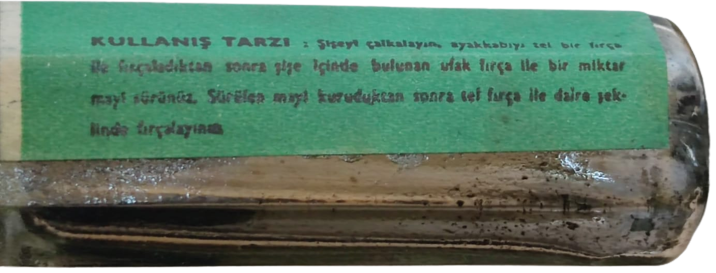 KULLANIŞ TARZI : Şişeyi çalkalayın, ayakkabıyı tel bir fırça
ile fırçaladıktan sonra şişe içinde bulunan ufak fırça ile bir miktar
mayi sürünüz. Sürülen mayi kuruduktan sonra tel fırça ile daire şek-
linde fırçalayınız